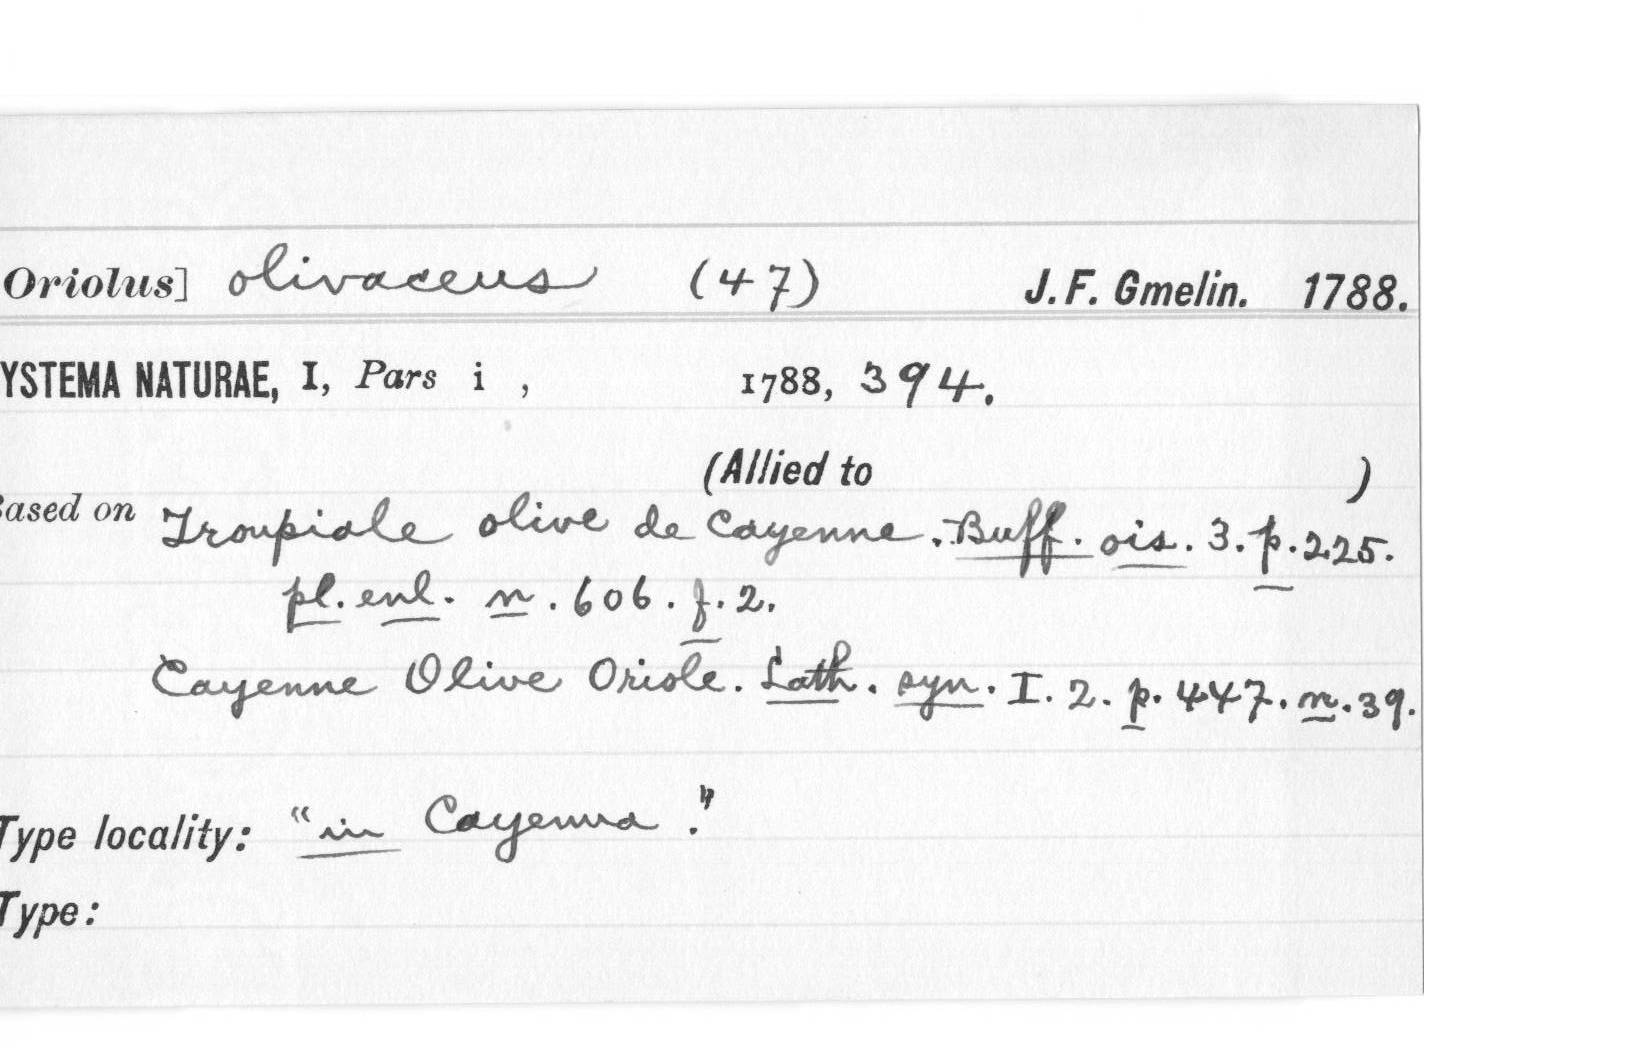 Oriolus] olivaceus (47) J. F. Gmelin. 1788.
YSTEMA NATURAE, I, Pars i , 1788, 394.
(Allied to )
Based on Troupiale olive de Cayenne. Buff. ois. 3. p. 225.
pl. enl. n. 606. f. 2.
Cayenne Olive Oriole. Lath. syn. I. 2. p. 447. n. 39.
Type locality: "in Cayenna."
Type: